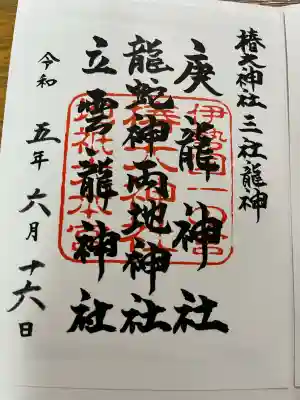 椿大神社三社龍神
庚龍神社
龍蛇神両地神社
立雲龍神社
令和五年六月十六日
伊勢国一宮
椿大神社
地祇大本宮